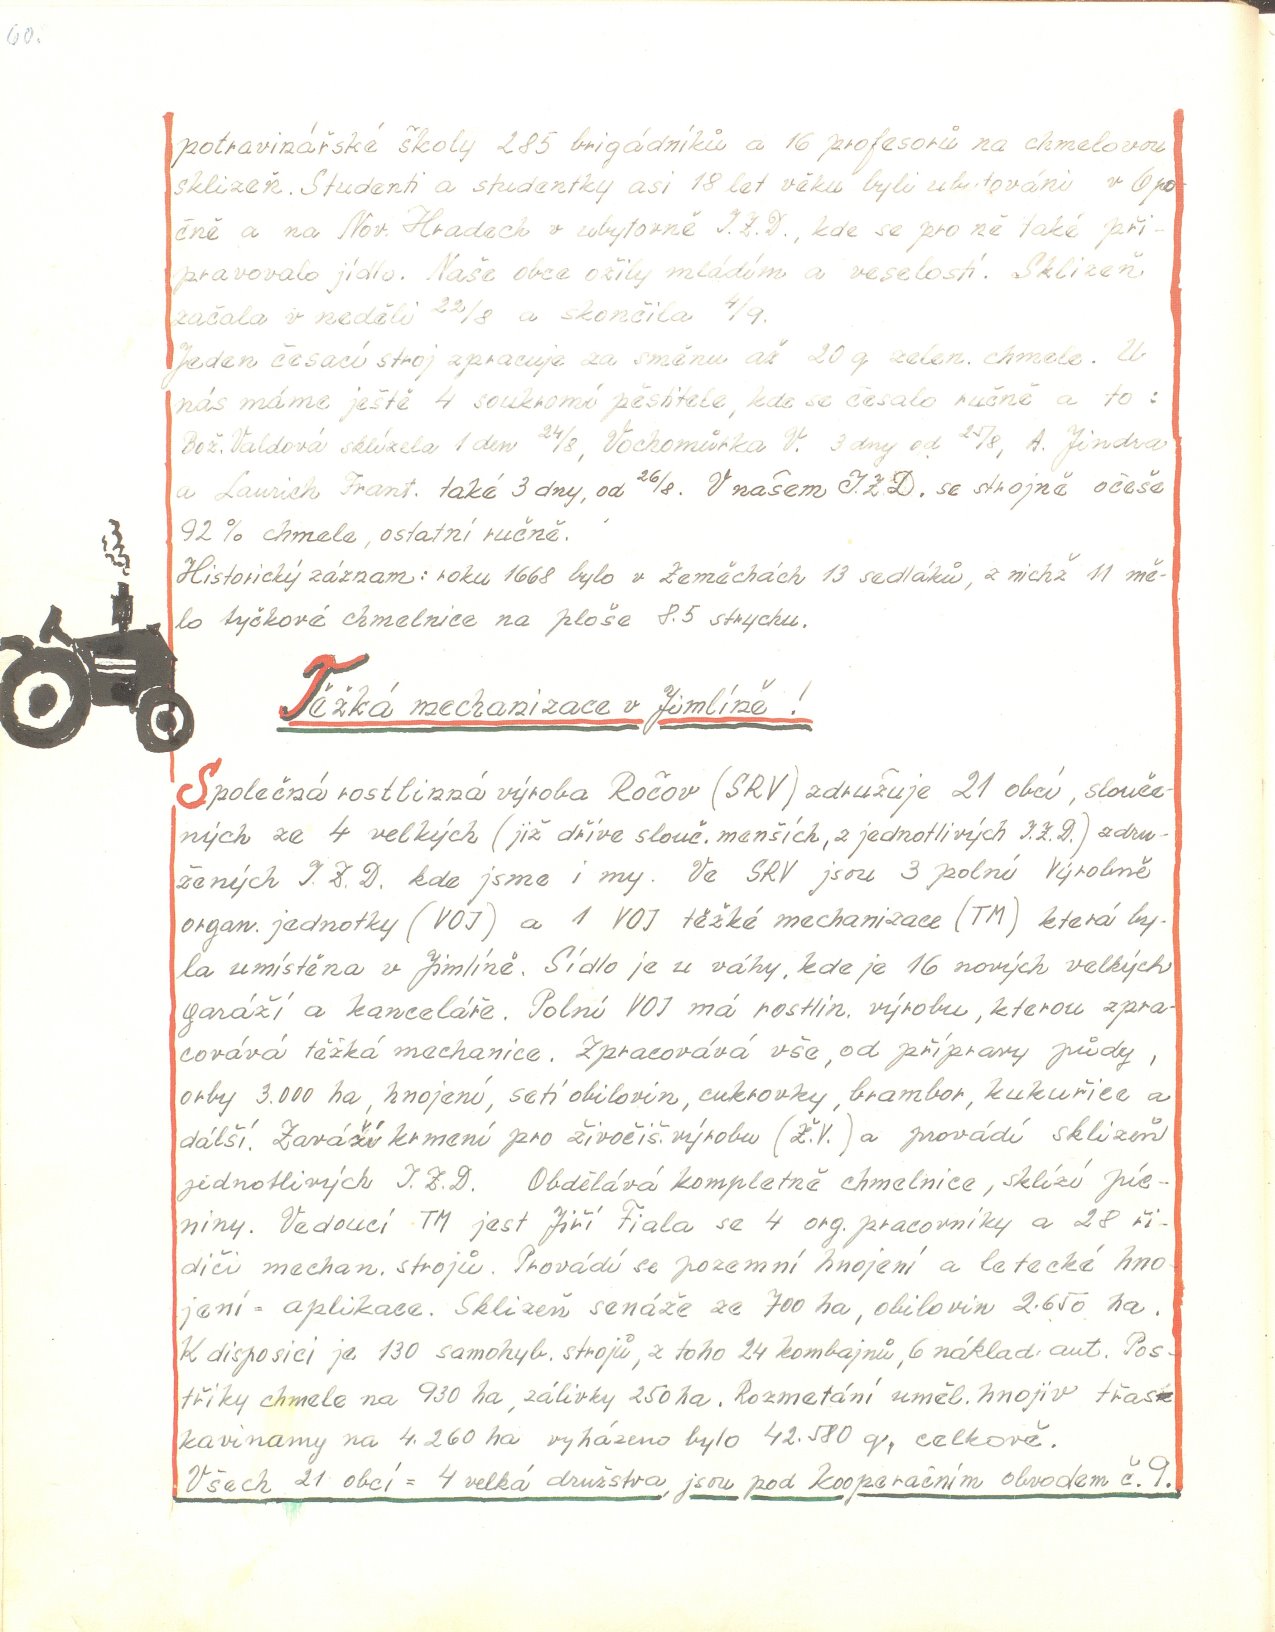 60.
potravinářské školy 285 brigádníků a 16 profesorů na chmelovou
sklizeň. Studenti a studentky asi 18 let věku byli ubytováni v Opo-
čně a na Nov. Hradech v ubytovně J.Z.D., kde se pro ně také při-
pravovalo jídlo. Naše obce ožily mládím a veselostí. Sklizeň
začala v neděli 22/8 a skončila 4/9.
Jeden česací stroj zpracuje za směnu až 20 q zelen. chmele. U
nás máme ještě 4 soukromé pěstitele, kde se česalo ručně a to :
Bož. Valdová sklízela 1 den 24/8, Vochomůrka V. 3 dny od 25/8, A. Jindra
a Laurich Frant. také 3 dny, od 26/8. V našem J.Z.D. se strojně očeše
92 % chmele, ostatní ručně.
Historický záznam: roku 1668 bylo v Zeměchách 13 sedláků, z nichž 11 mě-
lo tyčkové chmelnice na ploše 8.5 strychu.
Těžká mechanizace v Jimlíně !
Společná rostlinná výroba Ročov (SRV) združuje 21 obcí, slouče-
ných ze 4 velkých (již dříve slouč. menších, z jednotlivých J.Z.D.) zdru-
žených J.Z.D. kde jsme i my. Ve SRV jsou 3 polní Výrobně
organ. jednotky (VOJ) a 1 VOJ těžké mechanizace (TM) která by-
la umístěna v Jimlíně. Sídlo je u váhy, kde je 16 nových velkých
garáží a kanceláře. Polní VOJ má rostlin. výrobu, kterou zpra-
covává těžká mechanice. Zpracovává vše, od přípravy půdy,
orby 3.000 ha, hnojení, setí obilovin, cukrovky, brambor, kukuřice a
dálší. Zaváží krmení pro živočiš. výrobu (Ž.V.) a provádí sklizeň
jednotlivých J.Z.D. Obdělává kompletně chmelnice, sklízí píc-
niny. Vedoucí TM jest Jiří Fiala se 4 org. pracovníky a 28 ři-
diči mechan. strojů. Provádí se pozemní hnojení a letecké hno-
jení = aplikace. Sklizeň senáže ze 700 ha, obilovin 2.650 ha.
K disposici je 130 samohyb. strojů, z toho 24 kombajnů, 6 náklad. aut. Pos-
třiky chmele na 930 ha, zálivky 250 ha. Rozmetání uměl. hnojiv třas
kavinamy na 4.260 ha vyházeno bylo 42.580 q, celkově.
Všech 21 obcí = 4 velká družstva, jsou pod kooperačním obvodem č. 9.